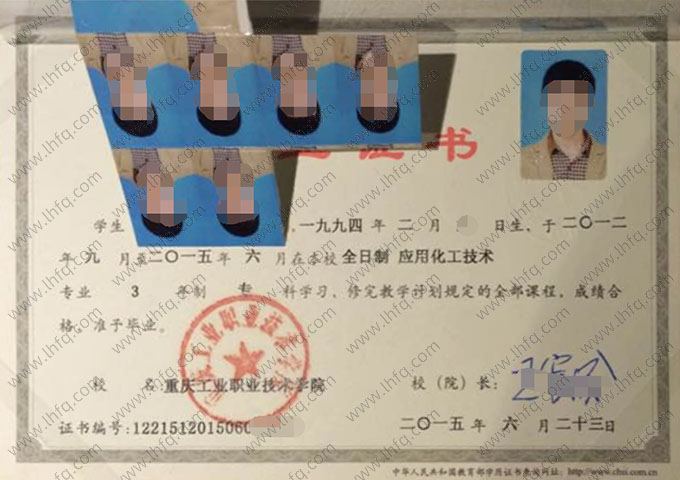 证书
学生 一九九四年 二 月 日生，于二〇一二
年 九 月至二〇一五年 六 月在本校 全日制 应用化工技术
专业 3 年制 专 科学习，修完教学计划规定的全部课程，成绩合
格，准予毕业。
重庆工业职业技术学院
校 名 重庆工业职业技术学院 校（院）长：
证书编号：1221512015060 二〇一五年 六 月 二十三日
中华人民共和国教育部学历证书查询网址：http://www.chsi.com.cn
www.lhfq.com